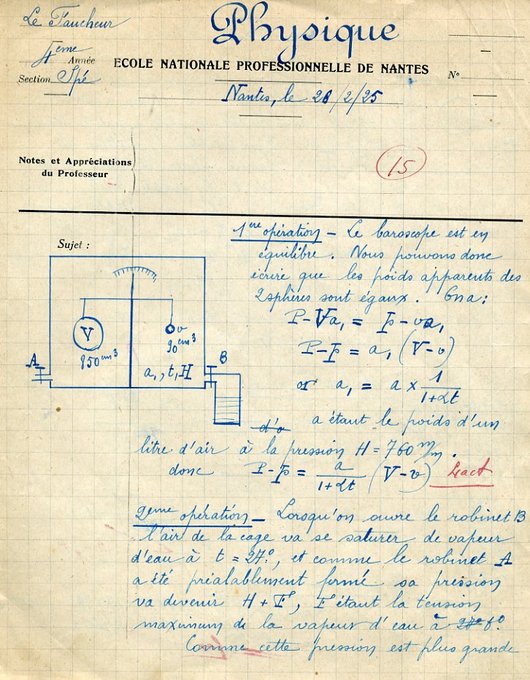 Le Faucheur
Physique
4eme Année
Section Spé
ECOLE NATIONALE PROFESSIONNELLE DE NANTES
N°
Nantes, le 28/2/25
Notes et Appréciations
du Professeur
15
Sujet :
1ere opération - Le baroscope est en
équilibre. Nous pouvons donc
écrire que les poids apparents des
2 sphères sont égaux. On a :
P - Va₁ = p - va₁
P - p = a₁ (V - v)
or a₁ = a × 1/(1+αt)
a étant le poids d'un
litre d'air à la pression H = 760 m/m.
donc P - p = a/(1+αt) (V - v)
2eme opération - Lorsqu'on ouvre le robinet B
l'air de la cage va se saturer de vapeur
d'eau à t = 27°, et comme le robinet A
a été préalablement fermé sa pression
va devenir H + F, F étant la tension
maximum de la vapeur d'eau à 27° t°
Comme cette pression est plus grande
V
950 cm³
v
90 cm³
A
B
a₁, t, H